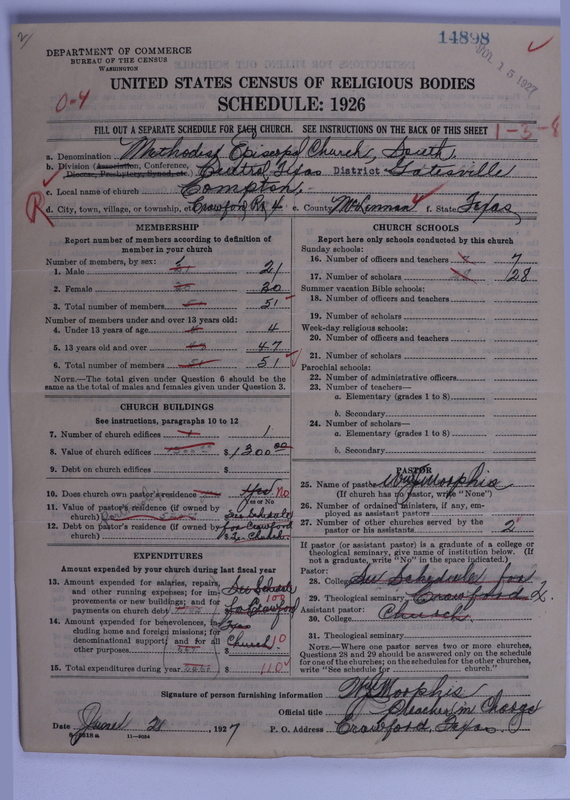 14898
JUL 15 1927
DEPARTMENT OF COMMERCE
BUREAU OF THE CENSUS
WASHINGTON
UNITED STATES CENSUS OF RELIGIOUS BODIES
SCHEDULE: 1926
0-4
FILL OUT A SEPARATE SCHEDULE FOR EACH CHURCH. SEE INSTRUCTIONS ON THE BACK OF THIS SHEET
1-3-8
a. Denomination Methodist Episcopal Church, South,
b. Division (Association, Conference, Diocese, Presbytery, Synod, etc.) Central Texas District Gatesville
c. Local name of church Compton,
R
d. City, town, village, or township, etc. Crawford R 4 e. County McLennan f. State Texas
MEMBERSHIP
Report number of members according to definition of member in your church
Number of members, by sex:
1. Male 21
2. Female 30
3. Total number of members 51
Number of members under and over 13 years old:
4. Under 13 years of age 4
5. 13 years old and over 47
6. Total number of members 51
NOTE.—The total given under Question 6 should be the same as the total of males and females given under Question 3.
CHURCH BUILDINGS
See instructions, paragraphs 10 to 12
7. Number of church edifices 1
8. Value of church edifices $ 1300.00
9. Debt on church edifices $
10. Does church own pastor's residence Yes No
Yes or No
11. Value of pastor's residence (if owned by church) See Schedule
12. Debt on pastor's residence (if owned by church) for Crawford $ Church
EXPENDITURES
Amount expended by church during last fiscal year
13. Amount expended for salaries, repairs, and other running expenses; for improvements or new buildings; and for payments on church debt See Schedule 100 for Crawford
14. Amount expended for benevolences, including home and foreign missions; for denominational support; and for all other purposes Church 10
15. Total expenditures during year $ 110
CHURCH SCHOOLS
Report here only schools conducted by this church
Sunday schools:
16. Number of officers and teachers 7
17. Number of scholars 28
Summer vacation Bible schools:
18. Number of officers and teachers
19. Number of scholars
Week-day religious schools:
20. Number of officers and teachers
21. Number of scholars
Parochial schools:
22. Number of administrative officers
23. Number of teachers—
a. Elementary (grades 1 to 8)
b. Secondary
24. Number of scholars—
a. Elementary (grades 1 to 8)
b. Secondary
PASTOR
25. Name of pastor W J Morphis
(If church has no pastor, write "None")
26. Number of ordained ministers, if any, employed as assistant pastors
27. Number of other churches served by the pastor or his assistants 2
If pastor (or assistant pastor) is a graduate of a college or theological seminary, give name of institution below. (If not a graduate, write "No" in the space indicated.)
Pastor:
28. College See Schedule for
29. Theological seminary Crawford
Assistant pastor:
30. College Church.
31. Theological seminary
NOTE.—Where one pastor serves two or more churches, Questions 28 and 29 should be answered only on the schedule for one of the churches; on the schedules for the other churches, write "See schedule for church."
Signature of person furnishing information W J Morphis
Official title Preacher in Charge
Date June 21, 1927 P. O. Address Crawford, Texas.
8-5518a 11-8034